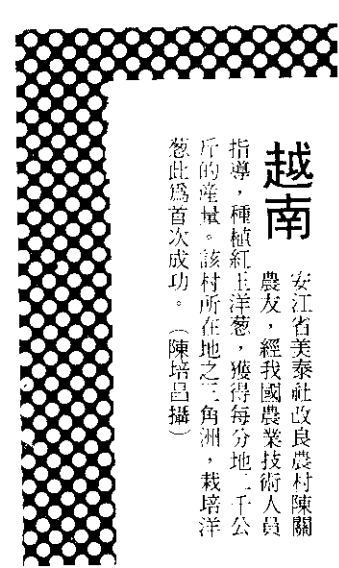 越南
安江省美泰社改良農村陳關
農友，經我國農業技術人員
指導，種植紅玉洋葱，獲得每分地二千公
斤的產量。該村所在地之三角洲，栽培洋
葱此爲首次成功。（陳培昌攝）